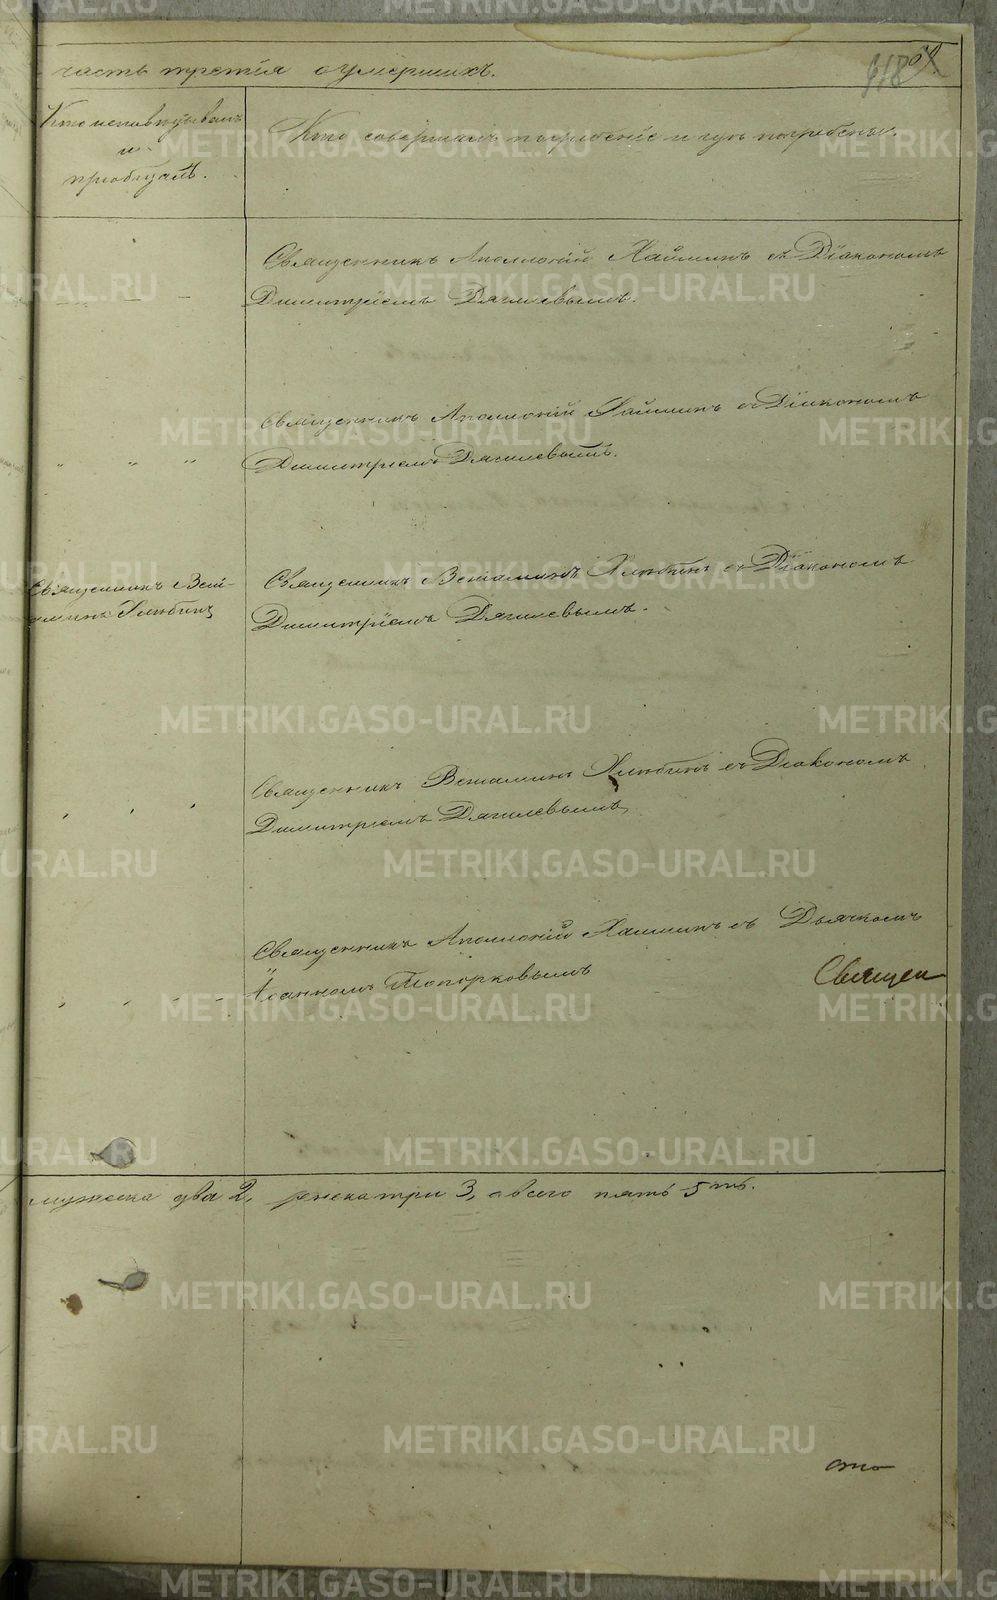 часть третія о умершихъ.
118
Кто исповѣдывалъ
и
пріобщалъ.
Кто совершалъ погребеніе и гдѣ погребены.
Священникъ Аполлоній Хайминъ съ Діакономъ
Димитріемъ Дягилевымъ.
Священникъ Аполлоній Хайминъ съ Діакономъ
Димитріемъ Дягилевымъ.
Священникъ Веніа-
минъ Хлюбинъ
Священникъ Веніаминъ Хлюбинъ съ Діакономъ
Димитріемъ Дягилевымъ.
Священникъ Веніаминъ Хлюбинъ съ Діакономъ
Димитріемъ Дягилевымъ,
Священникъ Аполлоній Хайминъ съ Дьячкомъ
Іоанномъ Топорковымъ
Священ
мужеска два 2, женска три 3, а всего пять 5ть.
METRIKI.GASO-URAL.RU